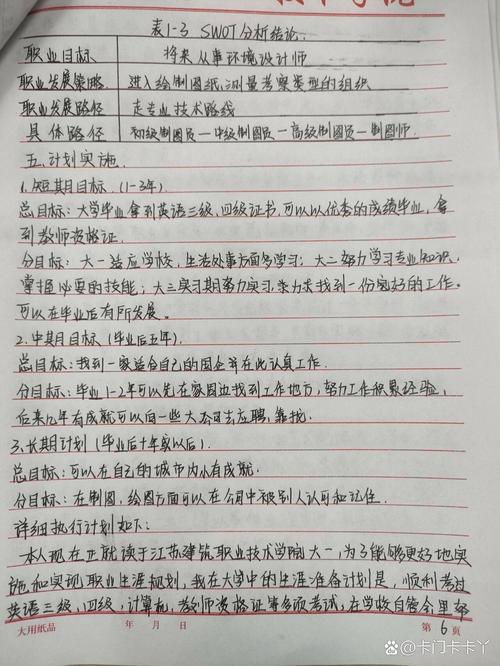 表1-3 SWOT分析结论.
职业目标 将来从事环境设计师
职业发展策略 进入绘制图纸,测量考察类型的组织
职业发展路径 走专业技术路线
具体路径 初级制图员—中级制图员—高级制图员—制图师.
五.计划实施.
1.短期目标.(1-3年)
总目标:大学毕业拿到英语三级,四级证书.可以以优秀的成绩毕业,拿
到教师资格证.
分目标:大一适应学校,生活处事方面多学习;大二努力学习专业知识,
掌握必要的技能;大三实习期努力实习,来力求找到一份完好的工作.
可以在毕业后有所发展。
2.中期目标(毕业后五年).
总目标:找到一家适合自己的国企并在此认真工作.
分目标:毕业1-2年可以先在家周边找到工作地方,努力工作积累经验,
后来几年有成就可以向一些大公司去应聘,靠拢.
3.长期计划(毕业后十年或以后).
总目标:可以在自己的城市内小有成就.
分目标:在制图,绘图方面可以在公司中被别人认可和记住.
详细执行计划如下:
本人现在正就读于江苏建筑职业技术学院大一,为了能够更好地实
施和实现职业生涯规划,我在大学中的生涯准备计划是,顺利考过
英语三级,四级,计算机,教师资格证等多项考试,在学校自管会里都
大用纸品 年 月 日 第6页
@卡门卡卡丫